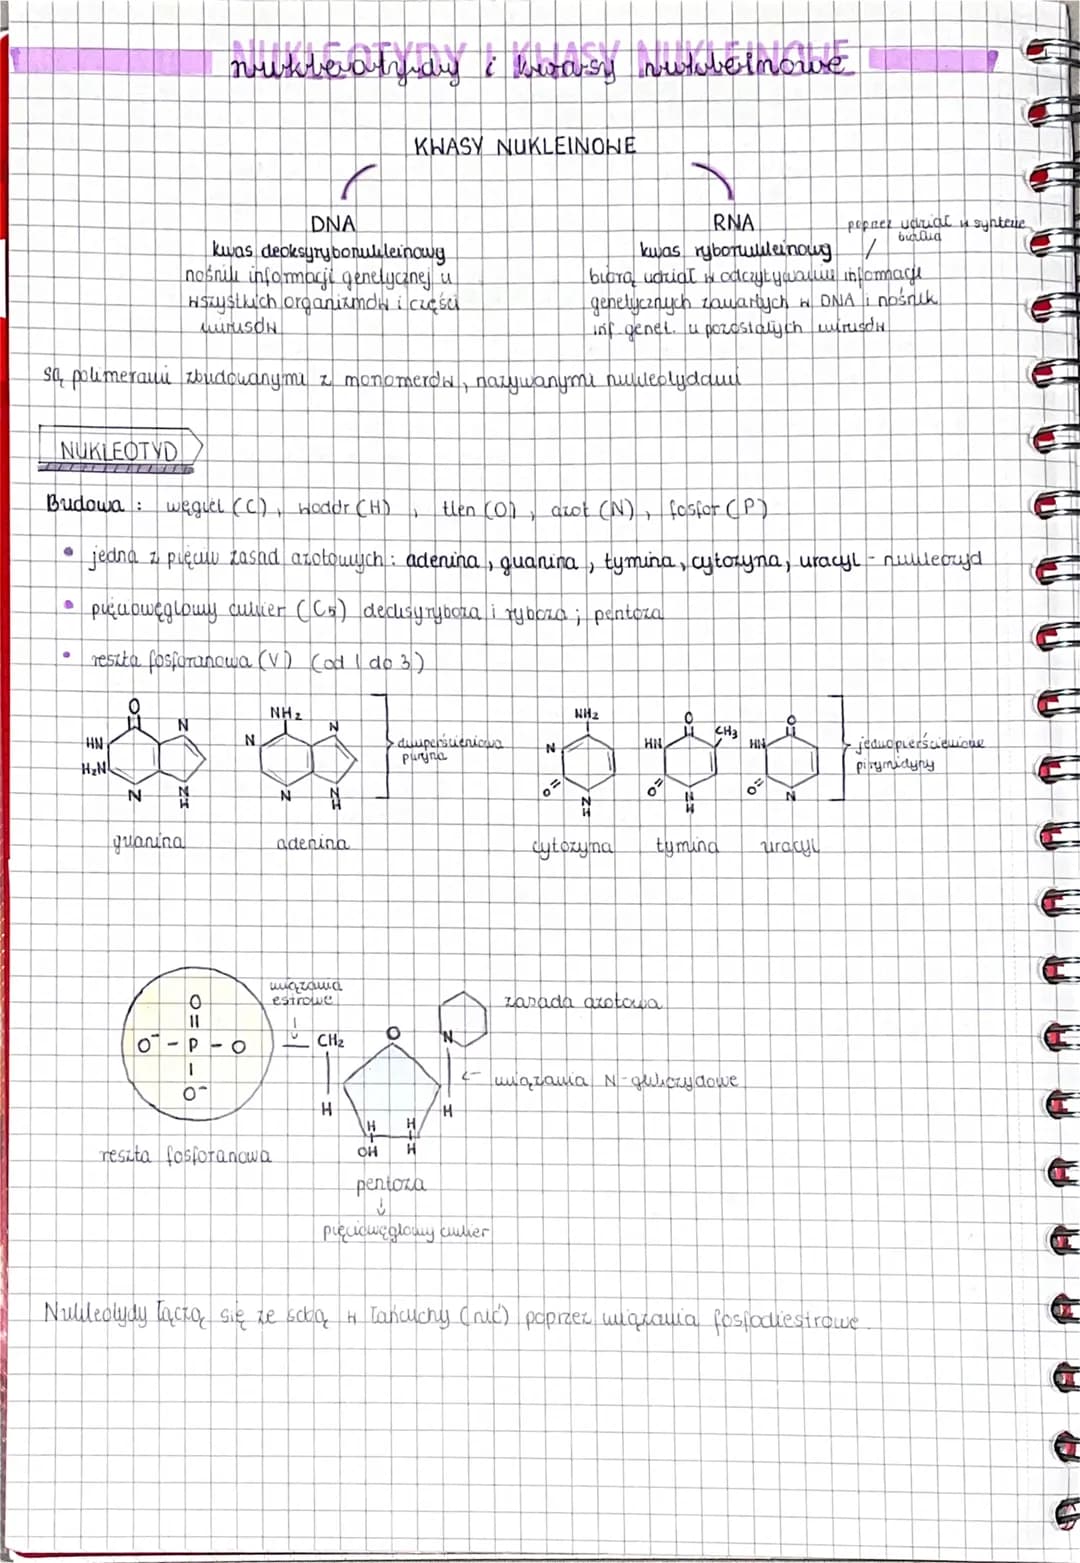 NUKLEOTYDY I KWASY NUKLEINOWE
nukleotydy i kwasy nukleinowe
KWASY NUKLEINOWE
DNA
kwas deoksyrybonukleinowy
nośnik informacji genetycznej u
wszystkich organizmów i części
wirusów
RNA
poprzez udział w syntezie
białka
kwas rybonukleinowy
biorą udział w odczytywaniu informacji
genetycznych zawartych w DNA i nośnik
inf. genet. u pozostałych wirusów
są polimerami zbudowanymi z monomerów, nazywanymi nukleotydami
NUKLEOTYD
Budowa: węgiel (C), wodór (H), tlen (O), azot (N), fosfor (P)
• jedna z pięciu zasad azotowych: adenina, guanina, tymina, cytozyna, uracyl - nukleozyd
• pięciowęglowy cukier (C5) deoksyryboza i ryboza; pentoza
• reszta fosforanowa (V) (od 1 do 3)
O N HN H₂N N N H
guanina
NH₂ N N N N H
adenina
dwupierścieniowa
puryna
NH₂ N O N H
cytozyna
O CH₃ HN O N H
tymina
O HN O N
uracyl
jednopierścieniowe
pirymidyny
O
O⁻ - P - O
O⁻
reszta fosforanowa
wiązania
estrowe
CH₂ O N
H H
H H
OH H
zasada azotowa
← wiązania N-glikozydowe
pentoza
↓
pięciowęglowy cukier
Nukleotydy łączą się ze sobą w łańcuchy (nić) poprzez wiązania fosfodiestrowe.